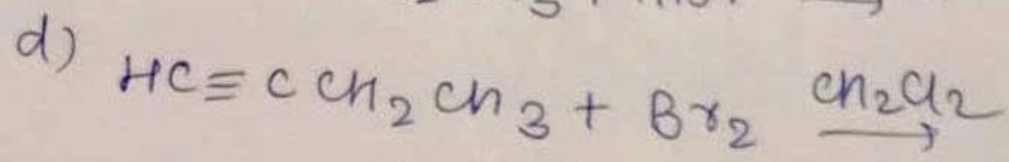 d) HC≡CCH₂CH₃ + Br₂ CH₂Cl₂ →